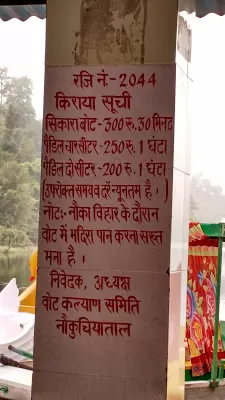 रजि नं:-2044
किराया सूची
सिकारा बोट-300रु.30 मिनट
पैडिल चार सीटर-250रु.1 घंटा
पैडिल दो सीटर-200रु.1 घंटा
(उपरोक्त समय व दरें न्यूनतम है।)
नोट:- नौका विहार के दौरान
वोट में मदिरा पान करना सख्त
मना है।
निवेदक, अध्यक्ष
वोट कल्याण समिति
नौकुचियाताल